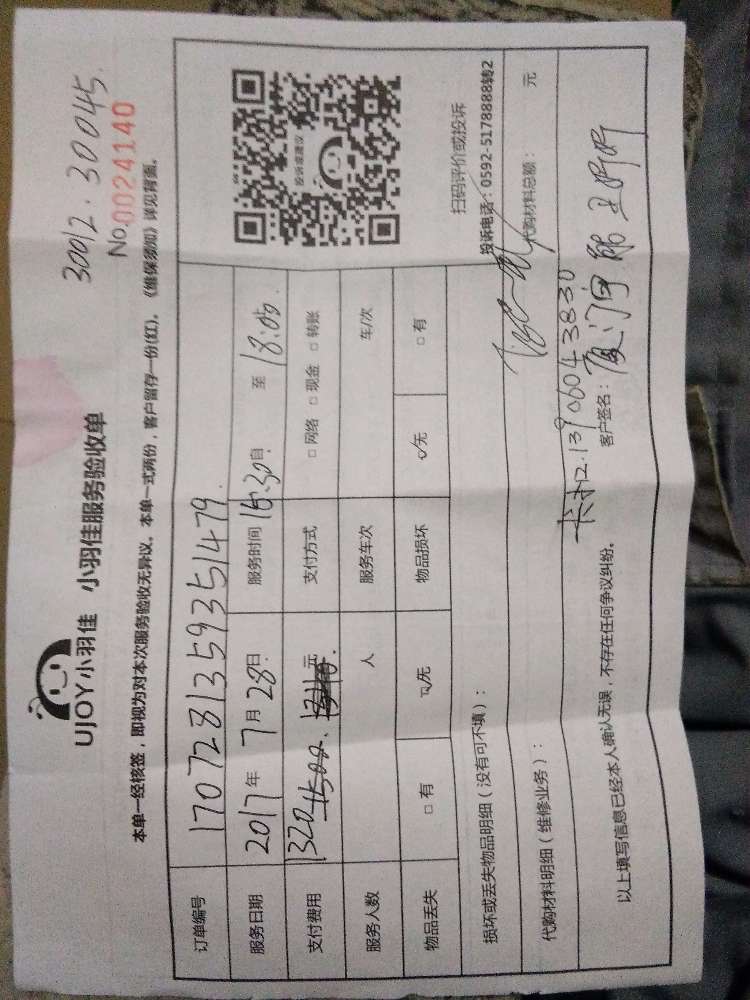 30012.30045.
No.0024140
UJOY小羽佳 小羽佳服务验收单
本单一经核签，即视为对本次服务验收无异议。本单一式两份，客户留存一份(红)。《维保须知》详见背面。
订单编号 1707281359351479.
服务日期 2017年 7月 28日 服务时间 16:30自 至 18:05
支付费用 1320 元 支付方式 □ 网络 □ 现金 □ 转账
服务人数 人 服务车次 车/次
物品丢失 □ 有 ☑无 物品损坏 ☑无 □ 有
投诉或建议
扫码评价或投诉
投诉电话：0592-5178888转2
损坏或丢失物品明细（没有可不填）：
代购材料明细（维修业务）： 代购材料总额： 元
13906043830
以上填写信息已经本人确认无误，不存在任何争议纠纷。 客户签名：